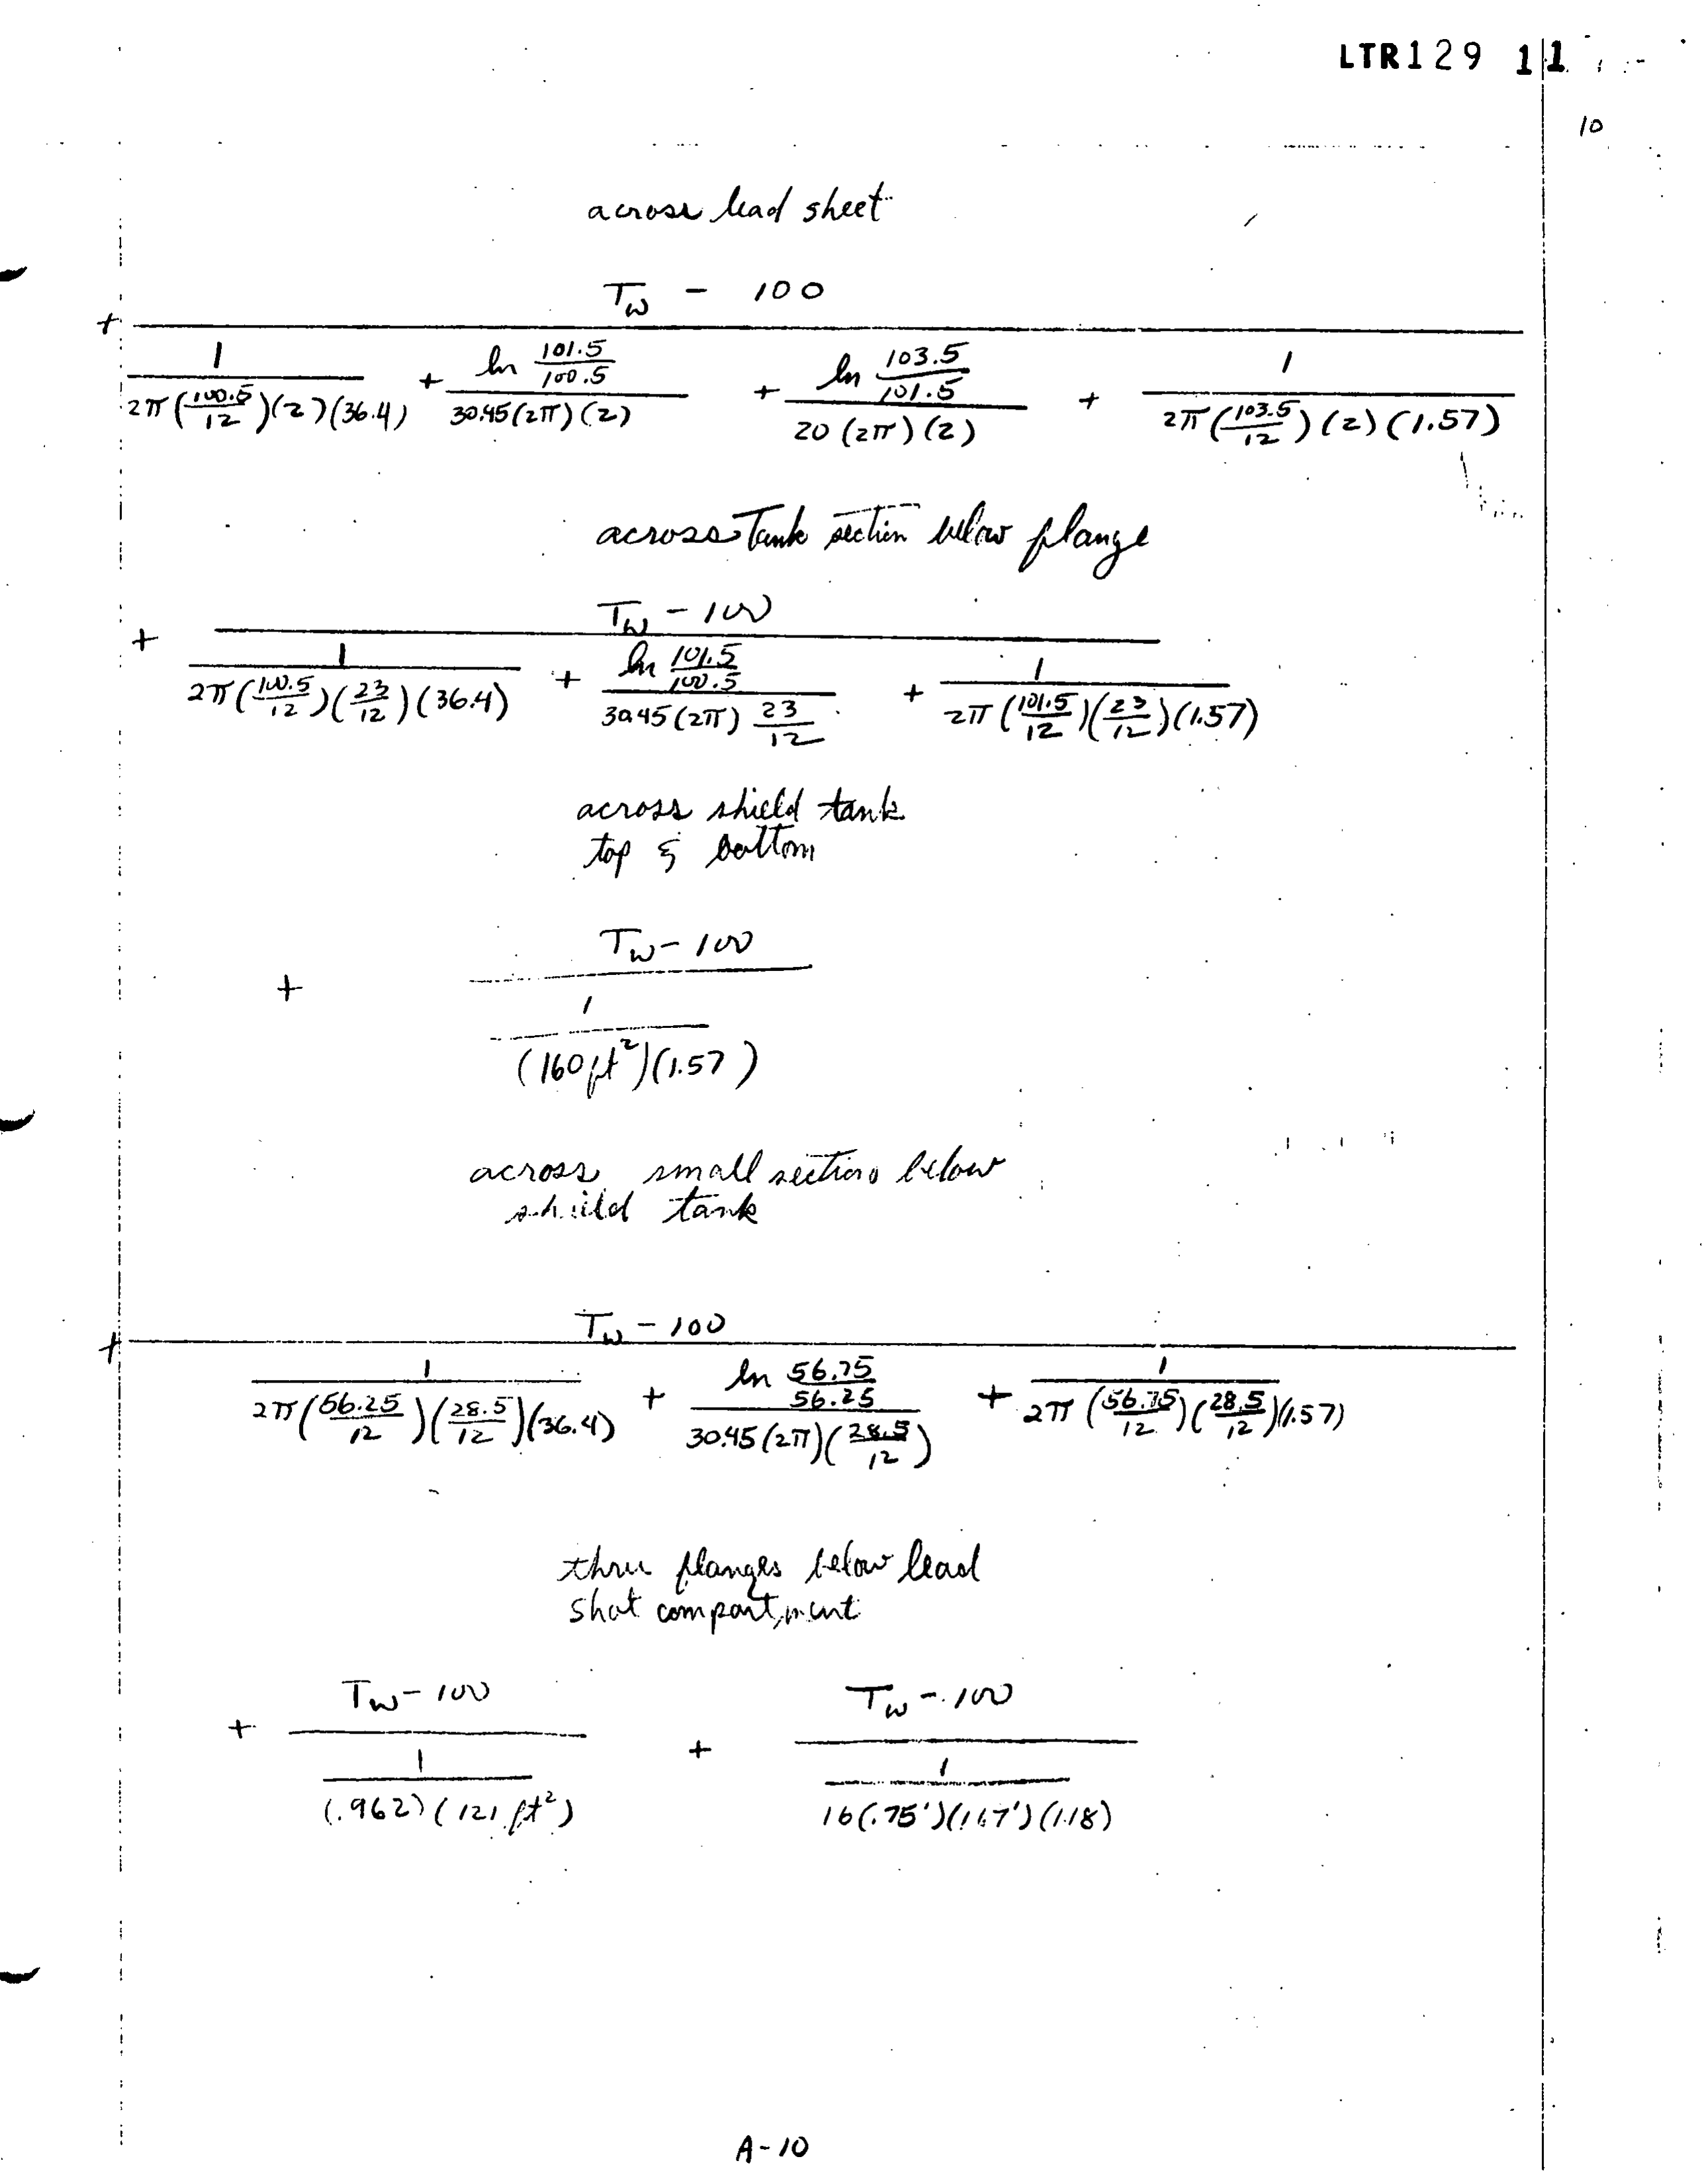 LTR129 11
10
across lead sheet
T_w - 100
+ ———
1 / 2π(100.5/12)(2)(36.4) + ln 101.5/100.5 / 30.45(2π)(2) + ln 103.5/101.5 / 20(2π)(2) + 1 / 2π(103.5/12)(2)(1.57)
across Tank section below flange
T_w - 100
+ ———
1 / 2π(100.5/12)(23/12)(36.4) + ln 101.5/100.5 / 30.45(2π) 23/12 + 1 / 2π(101.5/12)(23/12)(1.57)
across shield tank
top & bottom
T_w - 100
+ ———
1 / (160 ft²)(1.57)
across small section below
shield tank
T_w - 100
+ ———
1 / 2π(56.25/12)(28.5/12)(36.4) + ln 56.75/56.25 / 30.45(2π)(28.5/12) + 1 / 2π(56.75/12)(28.5/12)(1.57)
thru flanges below lead
shot compartment
T_w - 100 T_w - 100
+ ——— + ———
1 / (.962)(121 ft²) 1 / 16(.75')(1.67')(1.18)
A-10